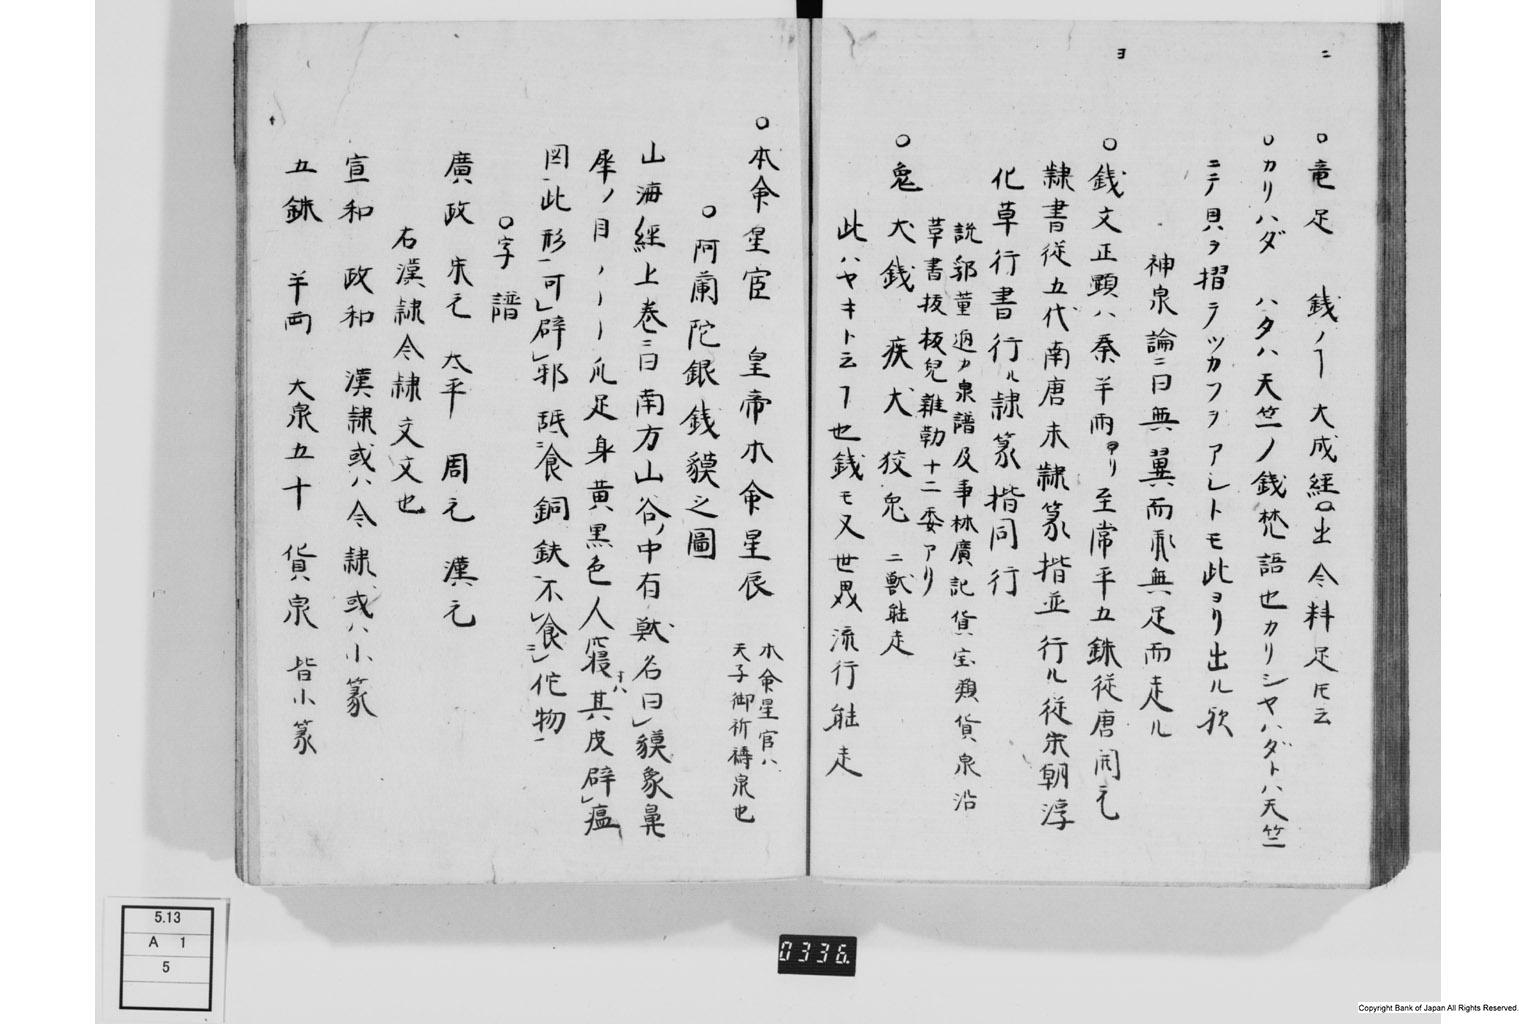 ニ
○竜足 銭ノヿ 大成経ニ出 今料足ト云
○カリハダ ハタハ天竺ノ銭梵語也カリシヤハダトハ天竺
ニテ貝ヲ摺テツカフヲアシトモ此ヨリ出ル歟
神泉論ニ曰無翼而飛無足而走ル
ヨ
○銭文正顕ハ秦半両ヨリ至常平五銖従唐開元
隷書従五代南唐末隷篆揩並行ル従宋朝淳
化草行書行ル隷篆揩同行
説郛董逌カ泉譜及事林廣記貨宝類貨泉沿
革書抜板兒雜勒十二委アリ
○兎犬銭 疾犬狡兎 二獣能走
此ハヤキト云ヿ也銭モ又世界流行能走
○本命星官 皇帝本命星辰 本命星官ハ
天子御祈祷泉也
○阿蘭陀銀銭貘之圖
山海經上巻ニ曰南方山谷ノ中有獣名曰貘象鼻
犀ノ目 爪足身黄黒色人寝其皮辟瘟
図此形可辟邪舐食銅鉄不食佗物
○字譜
廣政 宋元 太平 周元 漢元
右漢隷今隷文文也
宣和 政和 漢隷或ハ今隷或ハ小篆
五銖 半両 大泉五十 貨泉 皆小篆
5.13
A 1
5
0336.
Copyright Bank of Japan All Rights Reserved.